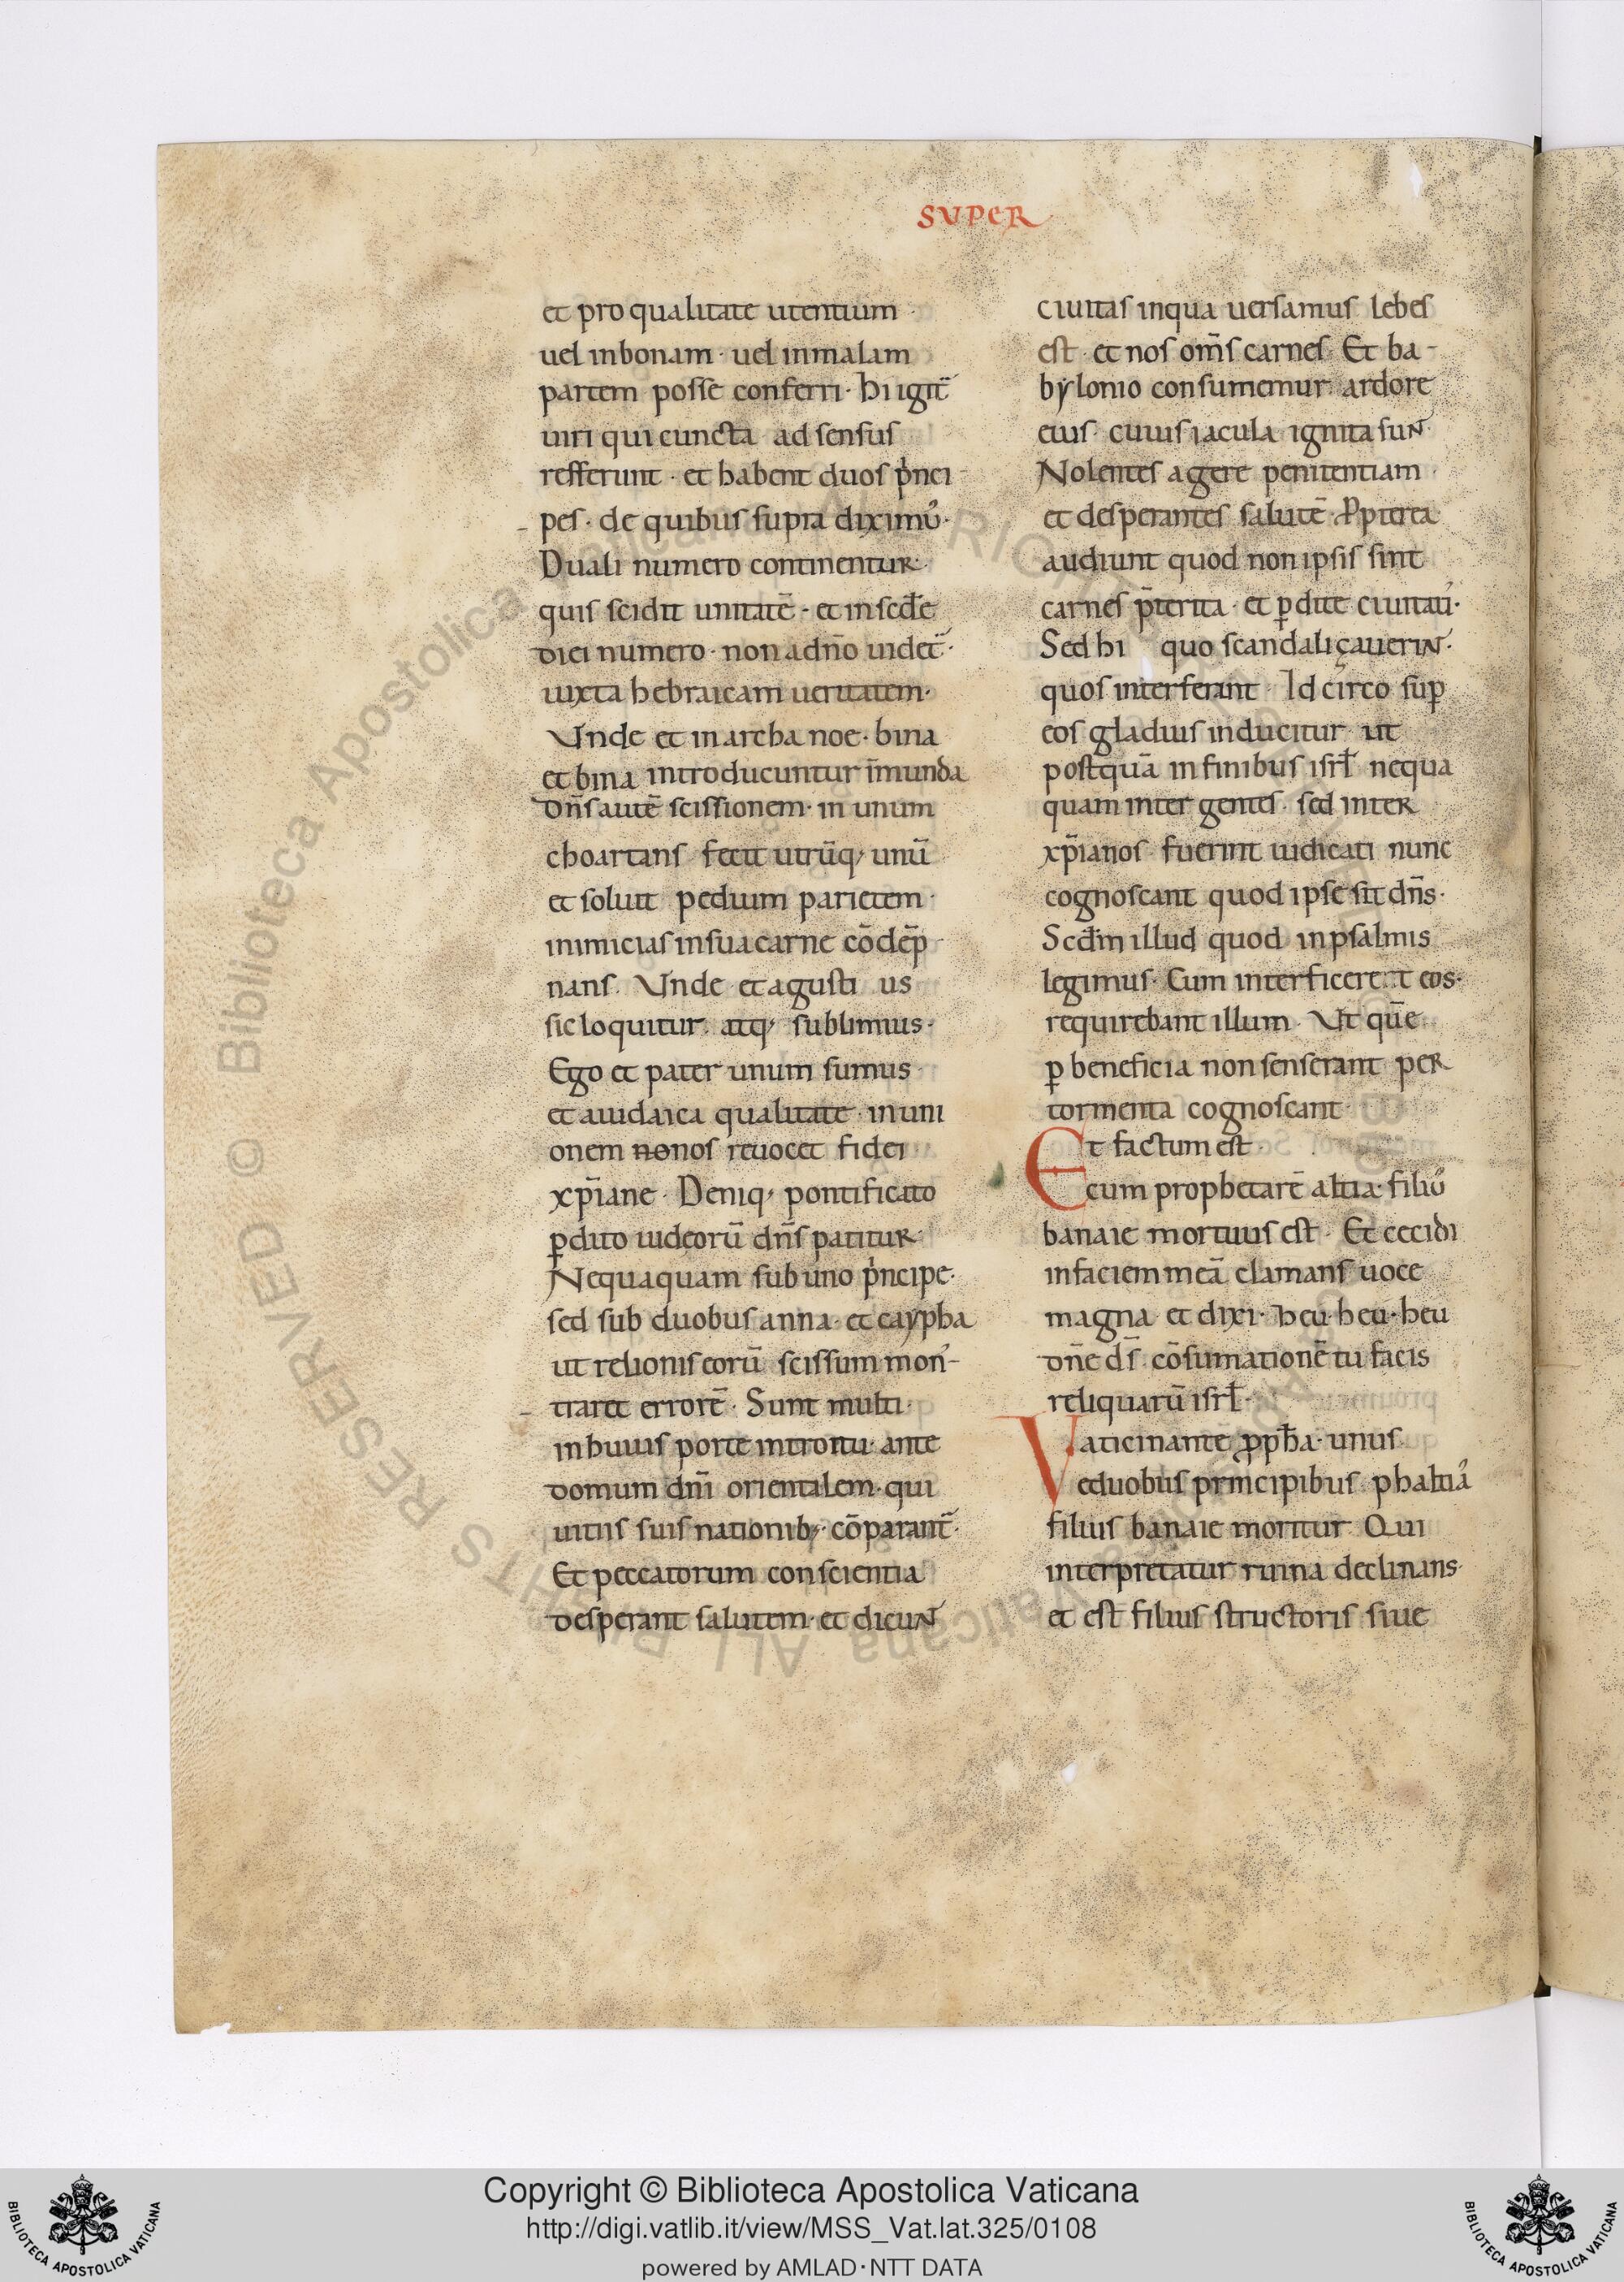 SVPER
et pro qualitate utentium
uel inbonam · uel inmalam
partem posse conferri · hi igit̄
uiri qui cuncta ad sensus
refferunt · et habent duos p̍nci
pes · de quibus supra diximꝰ ·
Duali numero continentur ·
quis scidit unitatē · et in scd̄e
diei numero · non adn̄o uidet̄ ·
iuxta hebraicam ueritatem ·
Vnde et in archa noe · bina
et bina introducuntur īmunda
Dn̄s autē scissionem · in unum
choartans fecit utrūq, unū
et soluit pedium parietem ·
inimicias insua carne cōdēp
nans. Vnde et agusti us
sic loquitur. atq, sublimius ·
Ego et pater unum sumus
et a iudaica qualitate · in uni
onem nonos reuocet fidei
xp̄iane · Deniq, pontificato
ꝑdito iudeorū dn̄s patitur ·
Nequaquam sub uno p̍ncipe ·
sed sub duobus anna · et caypha
ut relionis eorū scissum mon-
traret errorē · Sunt multi ·
in huius porte introitu ante
domum dn̄i orientalem · qui
uitiis suis nationib, · cōparant̄ ·
Et peccatorum conscientia
desperant salutem · et dicuN
ciuitas inqua uersamus lebes
est · et nos om̄s carnes · Et ba-
bẏlonio consumemur ardore
eius · cuius iacula ignita suN ·
Nolentes agere penitentiam
et desperantes salutē · Ꝓpterea
audiunt quod non ipsis sint
carnes p̄terita · et ꝑdite ciuitati ·
Sed hi quo scandaliçaueriN ·
quos interferant · Id circo suꝑ
eos gladius inducitur ut
postquā in finibus isrł nequa
quam inter gentes · sed inter
xp̄ianos fuerint iudicati nunc
cognoscant quod ipse sit dn̄s ·
Scd̄m illud quod in psalmis
legimus · Cum interficere t eos ·
requirebant illum · Vt quē
ꝑ beneficia non senserant per
tormenta cognoscant ·
Et factum est
cum prophetarē altia · filiꝰ
banaie mortuus est · Et cecidi
infaciem meā clamans uoce
magna et dixi · heu · heu · heu
dn̄e ds̄ cōsumationē tu facis
reliquarū isrł ·
Vaticinante ꝓph̄a · unus
eduobus principibus phaltia
filius banaie moritur Qui
interpretatur ruina declinans ·
et est filius structoris siue
Copyright © Biblioteca Apostolica Vaticana
http://digi.vatlib.it/view/MSS_Vat.lat.325/0108
powered by AMLAD · NTT DATA
BIBLIOTECA APOSTOLICA VATICANA
BIBLIOTECA APOSTOLICA VATICANA